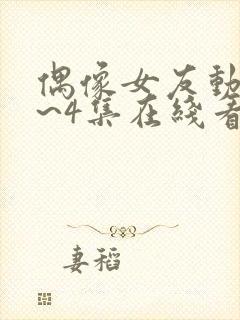 偶像女友動
~4集在綫看
妻稻